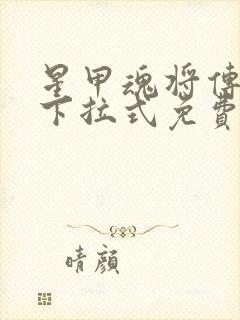 星甲魂将傳
下拉式免費
晴顔